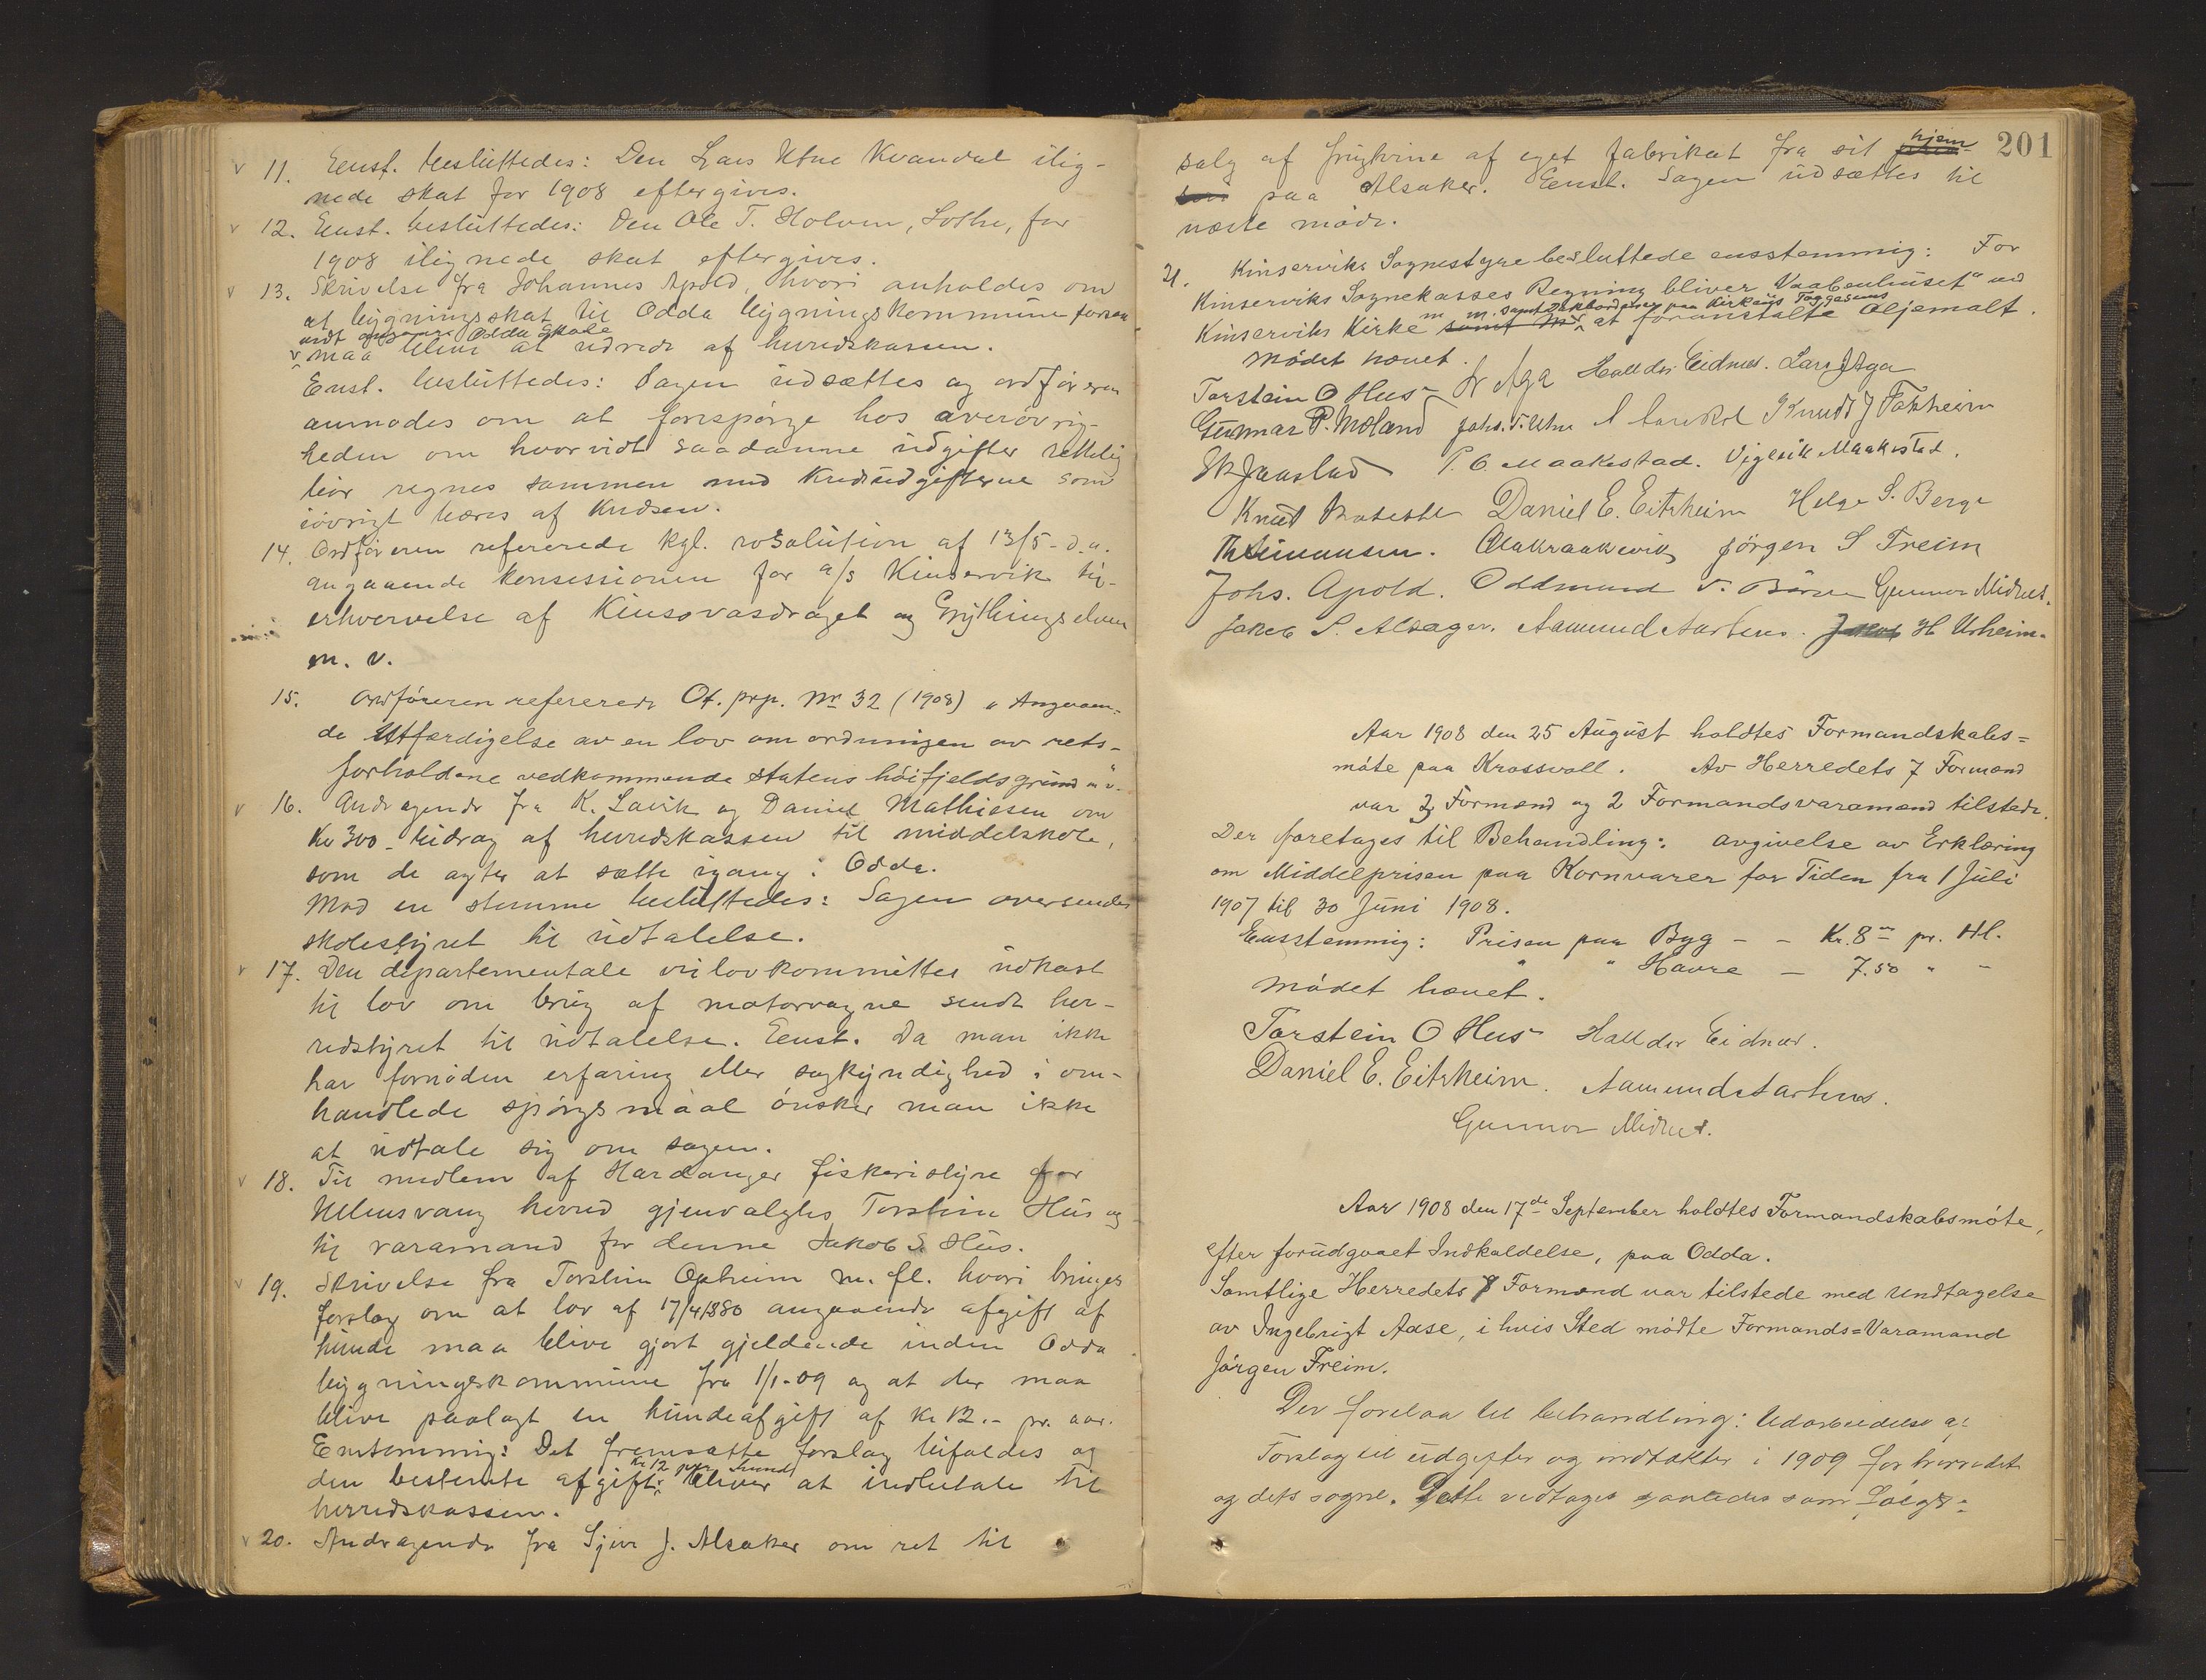 11. Eenst. besluttedes: Den Lars Utne Kvandal ilig-
nede skat for 1908 eftergives.
12. Eenst. besluttedes: Den Ole T. Holven, Lothe, for
1908 ilignede skat eftergives.
13. Skrivelse fra Johannes Apold, hvori anholdes om
at bygningsskat til Odda bygningskommune forsaa
vidt angaar Odda Skole
maa blive at udrede af herredskassen.
Enst. besluttedes: Sagen udsættes og ordføreren
anmodes om at forespørge hos overøvrig-
heden om hvorvidt saadanne udgifter rettelig
bør regnes sammen med Kredsudgifterne som
iøvrigt bæres af Kredsen.
14. Ordføreren refererede kgl. resolution af 13/5 - d.a.
angaaende konsessionen for a/s Kinservik til
erhvervelse af Kinsovasdraget og Erythingselven
m. v.
15. Ordføreren refererede Ot. prp. Nr 32 (1908) "Angaaen-
de Utfærdigelse av en lov om ordningen av rets-
forholdene vedkommende statens høifjeldsgrund m. v."
16. Andragende fra K. Lavik og Daniel Mathiesen om
Kr 300 bidrag af herredskassen til middelskole,
som de agter at sætte igang i Odda.
Mod en stemme besluttedes: Sagen oversendes
skolestyret til udtalelse.
17. Den departementale veilovkommittes udkast
til lov om brug af motorvogne sendt her-
redstyret til udtalelse. Eenst. Da man ikke
har fornøden erfaring eller sagkyndighed i om-
handlede spørgsmaal ønsker man ikke
at udtale sig om sagen.
18. Til medlem af Hardanger fiskeristyre for
Ullensvang herred gjenvalgtes Torstein Hus og
til varamand for denne Jakob S. Hus.
19. Skrivelse fra Torstein Opheim m. fl. hvori bringes
forslag om at lov af 17/4/1880 angaaende afgift af
hunde maa blive gjort gjeldende inden Odda
bygningskommune fra 1/1-09 og at der maa
blive paalagt en hundeafgift af Kr 12.- pr. aar.
Enstemmig: Det fremsatte forslag bifaldes og
Kr 12 per hund
den bestemte afgift bliver at indbetale til
herredskassen.
20. Andragende fra Sjur J. Alsaker om ret til
201
salg af frugtvine af eget fabrikat fra sit hjem
paa Alsaker. Eenst. Sagen udsættes til
næste møde.
21. Kinserviks Sognestyre besluttede ensstemmig: For
Kinserviks Sognekasses Regning bliver "Vaabenhuset" ved
m. m. samt Dækbordene paa Kirkens Taggesims
Kinserviks Kirke at foranstalte Oljemalt.
Mødet hævet.
Torstein O Hus Aga Halldor Eidnes. Lars J Aga
Gunnar P. Moland Johs. T. Utne Knudt J Tokheim
Jaastad P. O. Maakestad. Viglik Maakestad.
Knud Daniel E. Eitrheim Helge S. Berge
Th Simonsen. Jørgen S Freim
Johs. Apold. Oddmund Gunnar Midnes.
Jakob S. Alsager. Aamund Aartun. H Urheim.
Aar 1908 den 25 August holdtes Formandskabs=
møte paa Krossvoll. Av Herredets 7 Formænd
var 3 Formænd og 2 Formandsvaramænd tilstede.
Der foretages til Behandling: avgivelse av Erklæring
om Middelprisen paa Kornvarer for Tiden fra 1 Juli
1907 til 30 Juni 1908.
Eensstemmig: Prisen paa Byg - - Kr. 8 00 pr. Hl.
" " Havre - 7.50 " -
Mødet hævet.
Torstein O Hus Halldor Eidnes.
Daniel E. Eitrheim. Aamund Aartun.
Gunnar Midnes.
Aar 1908 den 17de September holdtes Formandskabsmøte,
efter forudgaaet Indkaldelse, paa Odda.
Samtlige Herredets 7 Formænd var tilstede med Undtagelse
av Ingebrigt Aase, i hvis Sted mødte Formands=Varamand
Jørgen Freim.
Der forelaa til behandling: Udarbeidelse af
Forslag til udgifter og indtækter i 1909 for herredet
og dets sogne. Dette vedtages saaledes som følger: